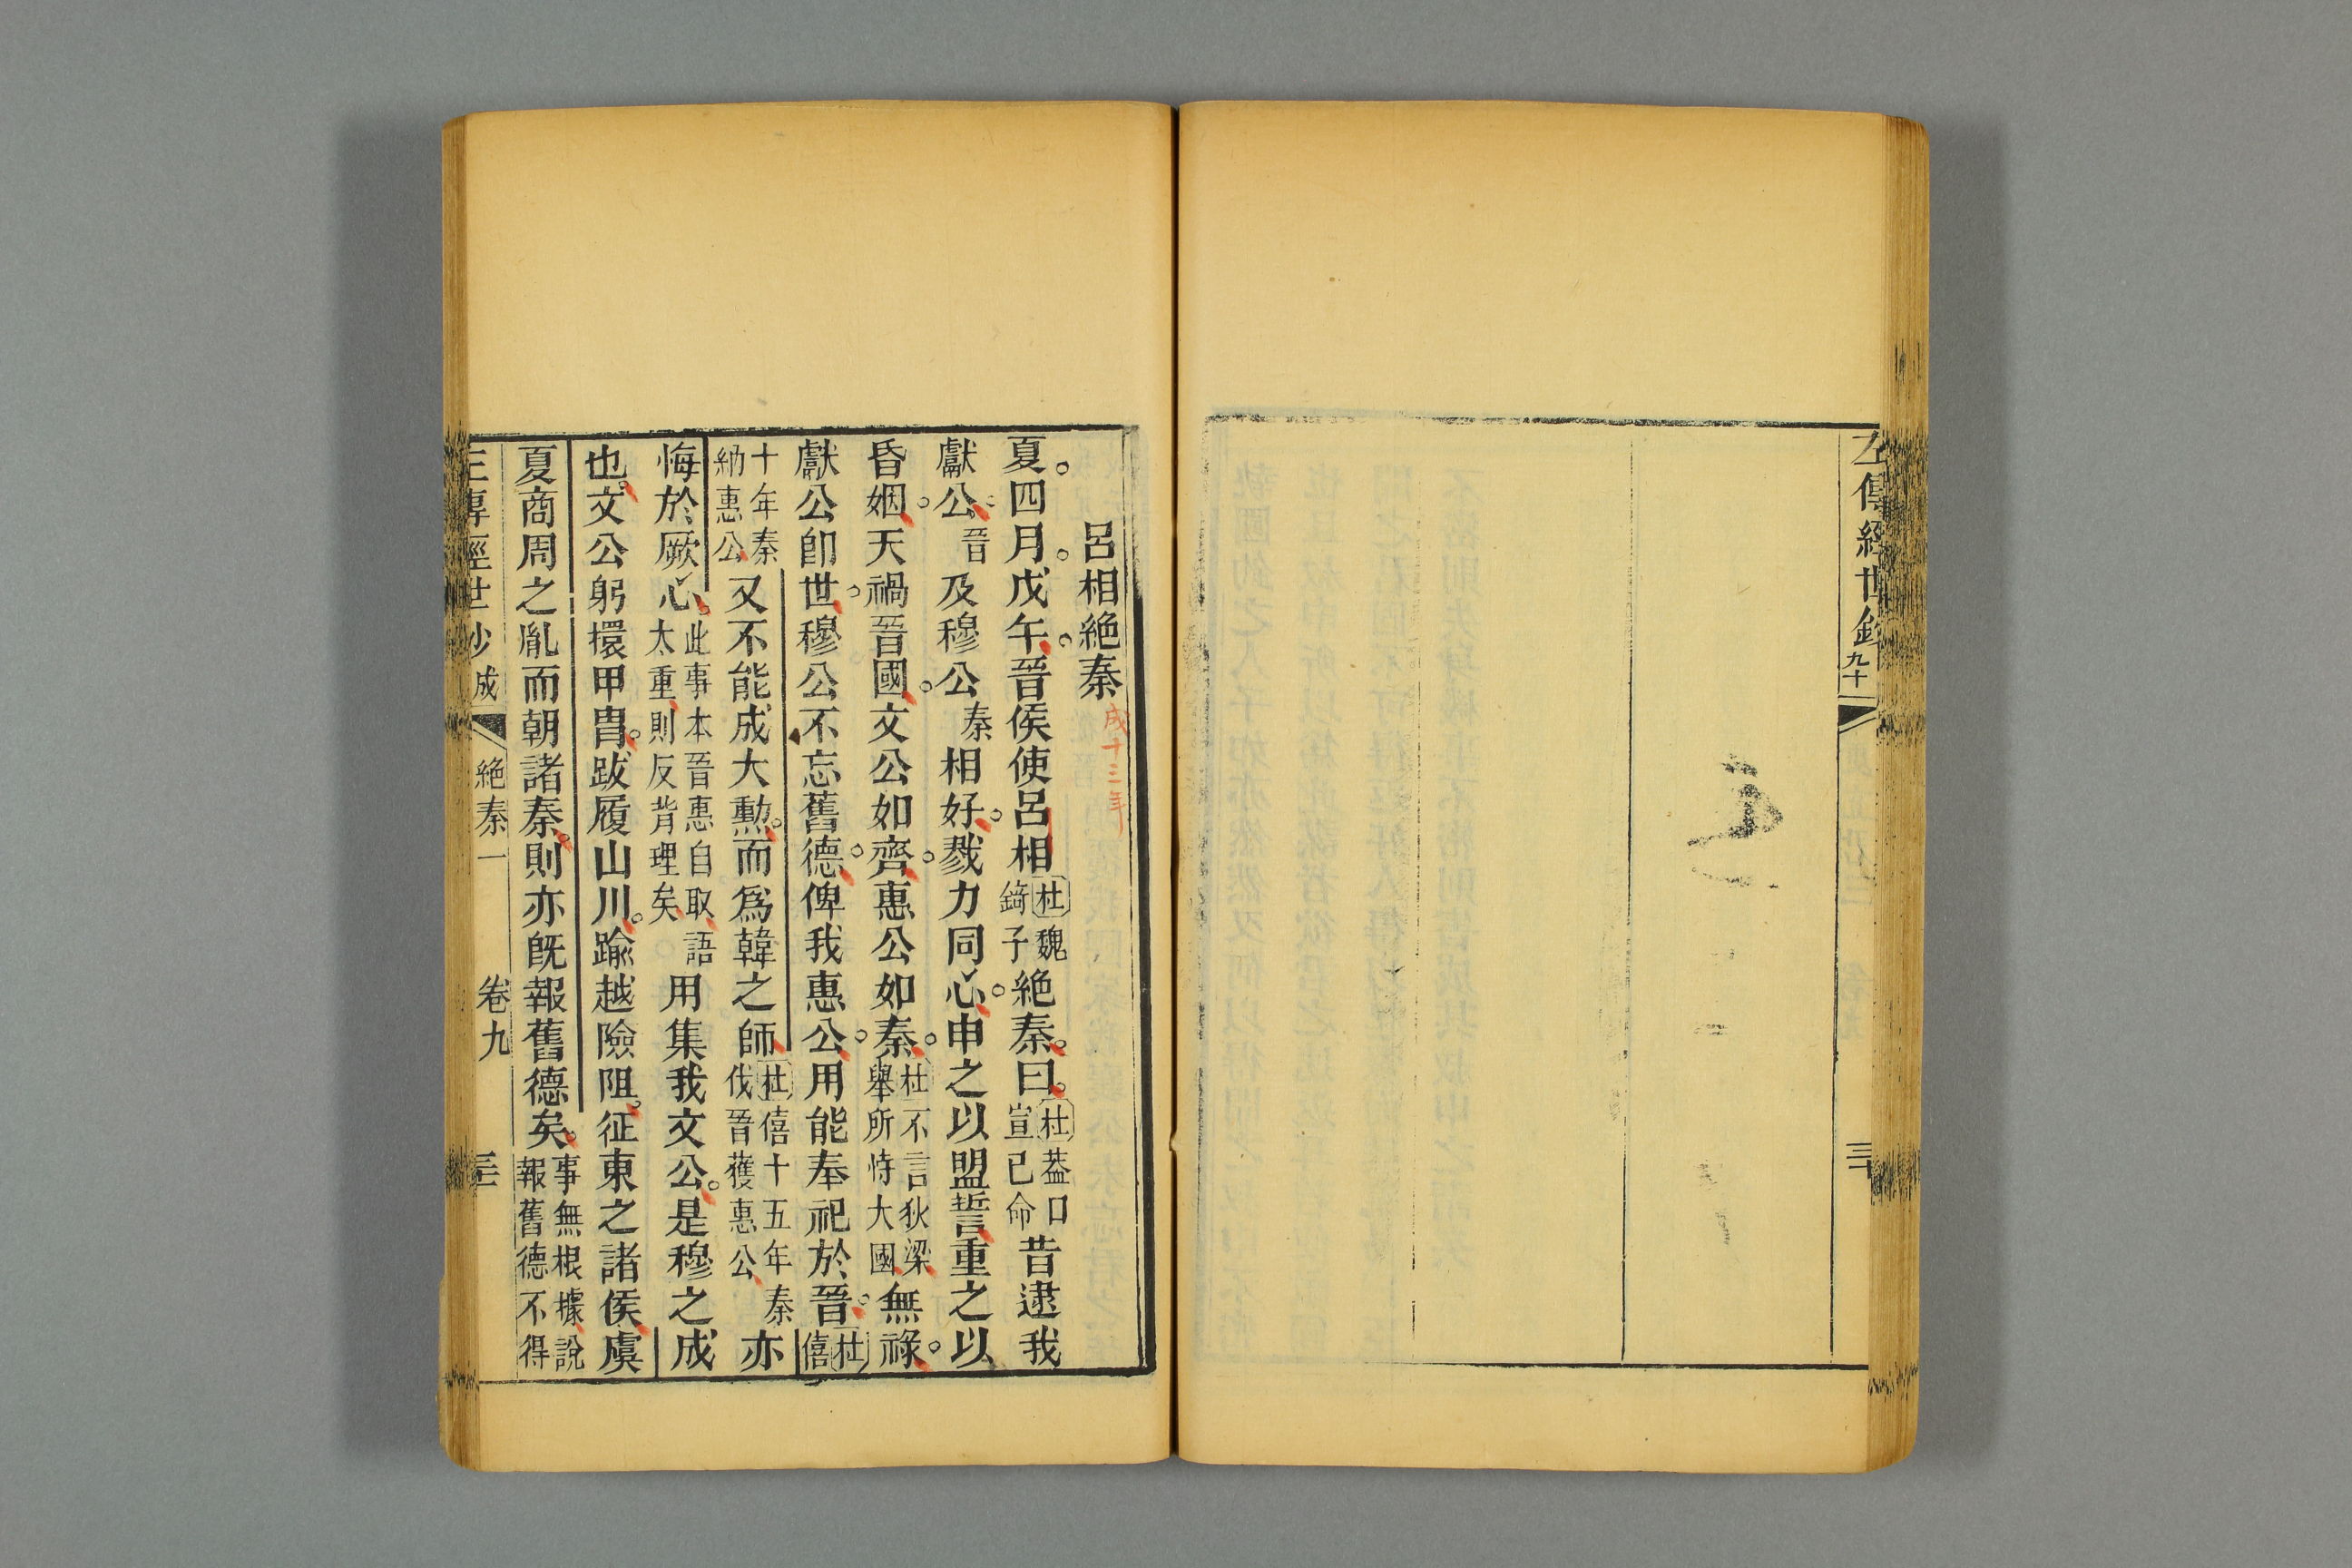 左傳經世鈔
九十
三十
呂相絶秦 成十三年
夏四月戊午晉侯使呂相杜魏錡子絶秦曰杜葢口宣己命昔逮我
獻公晉及穆公秦相好戮力同心申之以盟誓重之以
昏姻天禍晉國文公如齊惠公如秦杜不言狄梁舉所恃大國無祿
獻公卽世穆公不忘舊德俾我惠公用能奉祀於晉杜僖
十年秦納惠公又不能成大勲而爲韓之師杜僖十五年秦伐晉獲惠公亦
悔於厥心此事本晉惠自取語太重則反背理矣用集我文公是穆之成
也文公躬擐甲胄跋履山川踰越險阻征東之諸侯虞
夏商周之胤而朝諸秦則亦旣報舊德矣事無根據說報舊德不得
左傳經世鈔 成 絶秦一 卷九